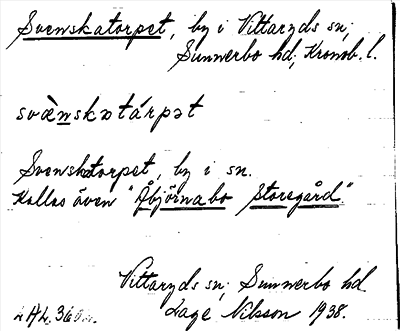 Svenskatorpet, by i Vittaryds sn;
Sunnerbo hd; Kronob. l.
svæ̀nskətárpət
Svenskatorpet, by i sn.
Kallas även "Åbjörnabo Storegård."
Vittaryds sn; Sunnerbo hd
Lage Nilsson 1938.